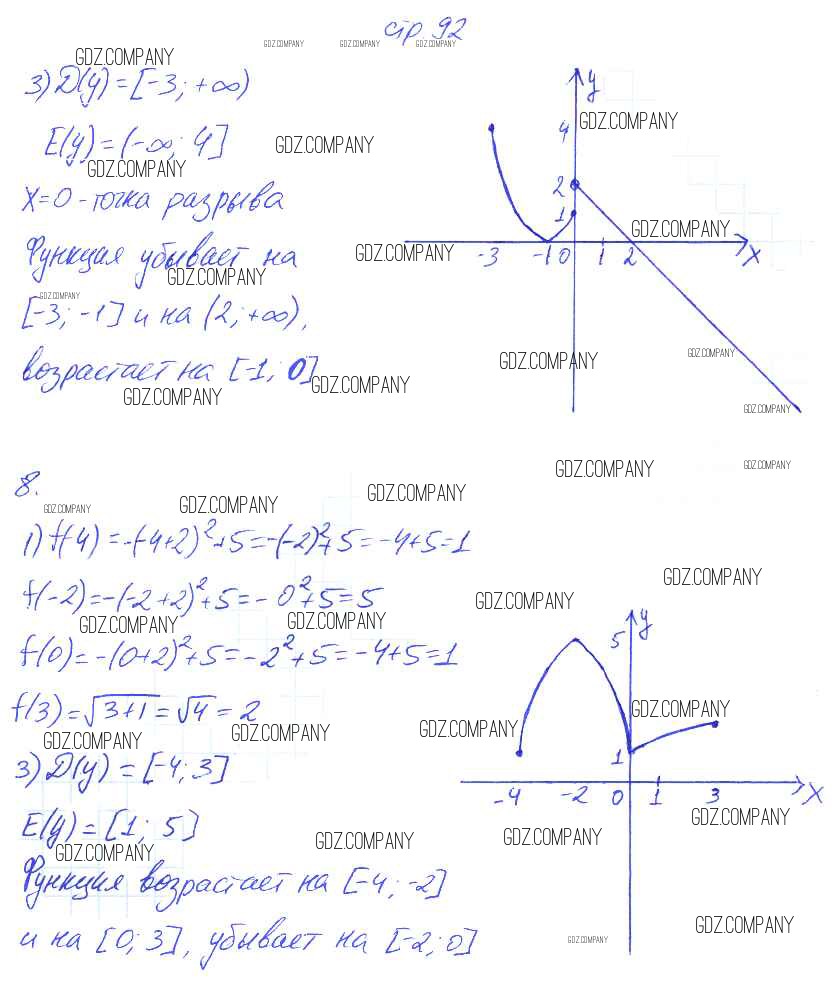 стр. 92
GDZ.COMPANY GDZ.COMPANY GDZ.COMPANY
GDZ.COMPANY
3) D(y) = [-3; +∞)
E(y) = (-∞; 4]
GDZ.COMPANY
GDZ.COMPANY
x=0 - точка разрыва
Функция убывает на
GDZ.COMPANY
GDZ.COMPANY
[-3; -1] и на (2; +∞),
возрастает на [-1; 0]
GDZ.COMPANY
GDZ.COMPANY
y
4
GDZ.COMPANY
2
1
GDZ.COMPANY
GDZ.COMPANY
-3 -1 0 1 2 x
GDZ.COMPANY
GDZ.COMPANY
GDZ.COMPANY
GDZ.COMPANY
GDZ.COMPANY
8.
GDZ.COMPANY
GDZ.COMPANY
GDZ.COMPANY
1) f(4) = -(-4+2)²+5=-(-2)²+5=-4+5=1
f(-2)=-(-2+2)²+5=-0²+5=5
GDZ.COMPANY
GDZ.COMPANY
GDZ.COMPANY
GDZ.COMPANY
f(0)=-(0+2)²+5=-2²+5=-4+5=1
f(3)=√3+1=√4=2
GDZ.COMPANY
GDZ.COMPANY
GDZ.COMPANY
3) D(y) = [-4; 3]
E(y) = [1; 5]
GDZ.COMPANY
GDZ.COMPANY
Функция возрастает на [-4; -2]
и на [0; 3], убывает на [-2; 0]
y
5
GDZ.COMPANY
1
-4 -2 0 1 3 x
GDZ.COMPANY
GDZ.COMPANY
GDZ.COMPANY
GDZ.COMPANY